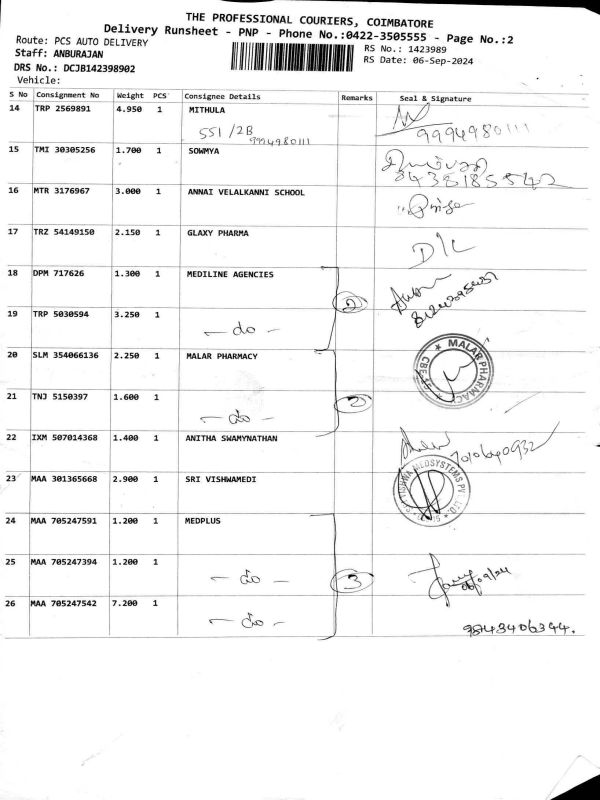 THE PROFESSIONAL COURIERS, COIMBATORE
Delivery Runsheet - PNP - Phone No.:0422-3505555 - Page No.:2
Route: PCS AUTO DELIVERY
RS No.: 1423989
Staff: ANBURAJAN
RS Date: 06-Sep-2024
DRS No.: DCJB142398902
Vehicle:
S No Consignment No Weight PCS Consignee Details Remarks Seal & Signature
14 TRP 2569891 4.950 1 MITHULA
551/2B
9994980111
9994980111
15 TMI 30305256 1.700 1 SOWMYA
8438185542
16 MTR 3176967 3.000 1 ANNAI VELALKANNI SCHOOL
17 TRZ 54149150 2.150 1 GLAXY PHARMA
D/L
18 DPM 717626 1.300 1 MEDILINE AGENCIES
2
19 TRP 5030594 3.250 1
— do —
20 SLM 354066136 2.250 1 MALAR PHARMACY
MALAR PHARMACY
2
21 TNJ 5150397 1.600 1
— do —
22 IXM 507014368 1.400 1 ANITHA SWAMYNATHAN
7010640932
23 MAA 301365668 2.900 1 SRI VISHWAMEDI
VISHWA MEDSYSTEMS PVT. LTD.
24 MAA 705247591 1.200 1 MEDPLUS
25 MAA 705247394 1.200 1
— do —
3
06/09/24
26 MAA 705247542 7.200 1
— do —
9843406344.